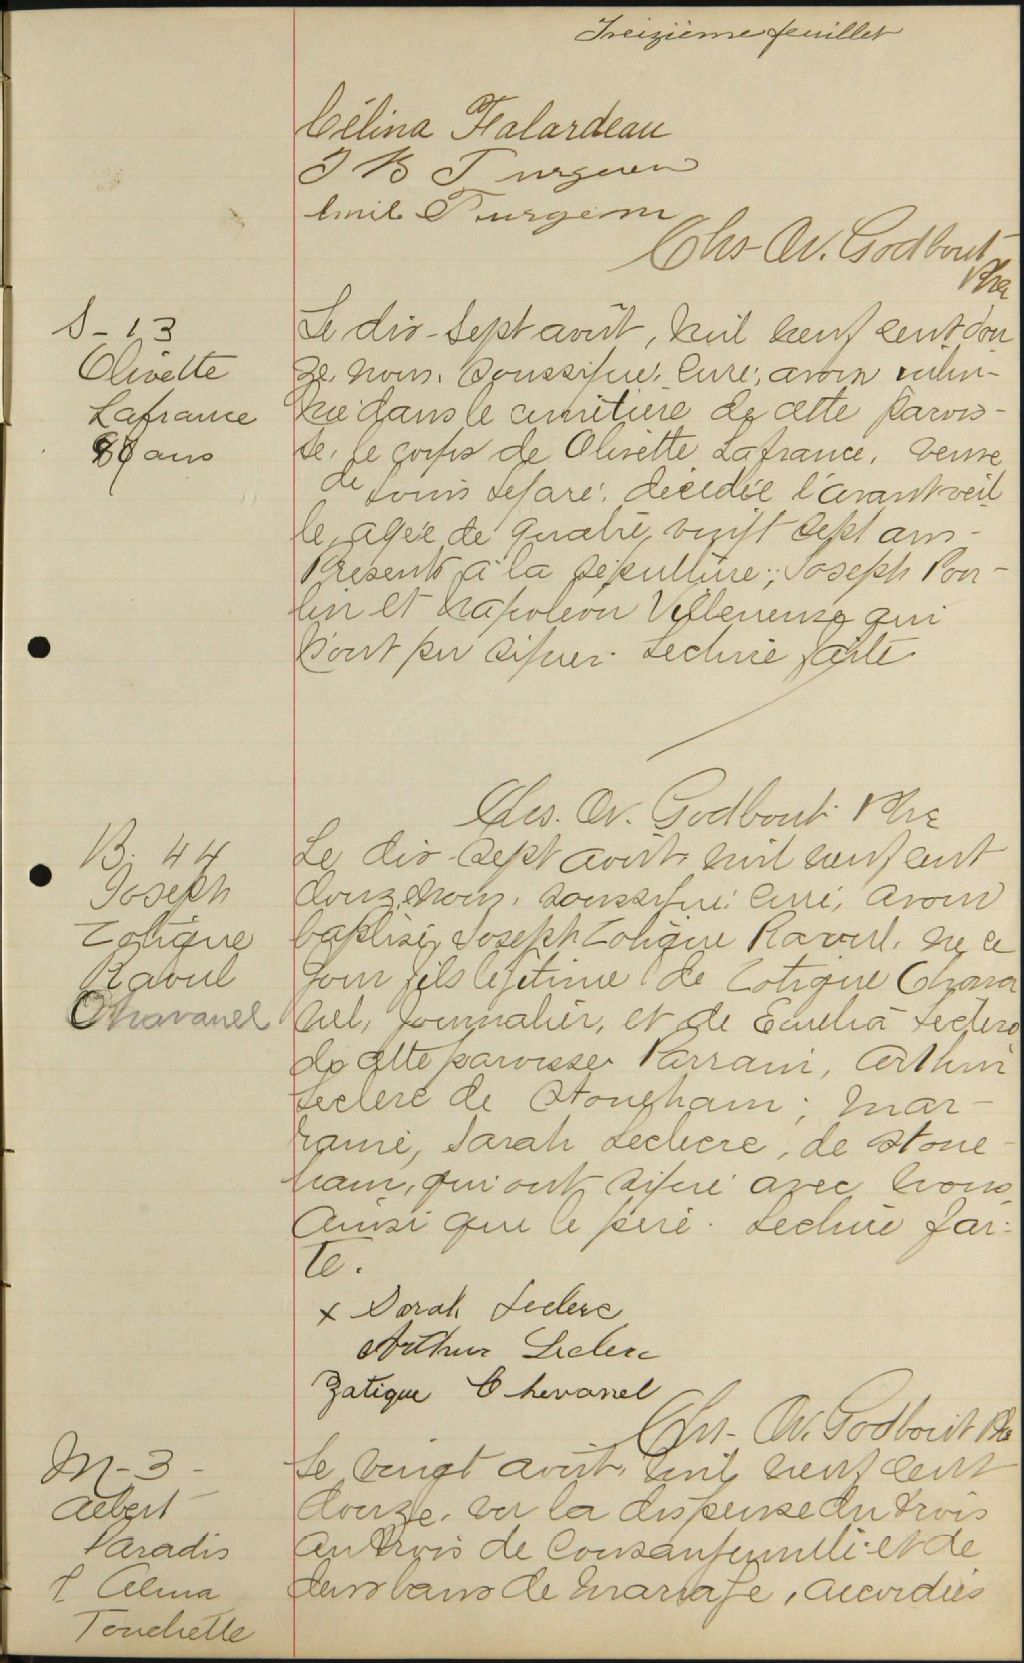 Treizième feuillet
Célina Falardeau
J B Turgeon
Emile Turgeon
Chs. Av. Godbout
Ptre
S-13
Olivette
Lafrance
87 ans
Le dix-sept août, mil neuf cent dou
ze, nous, soussigné, curé, avons inhu-
mé dans le cimetière de cette parois-
se, le corps de Olivette Lafrance, veuve
de Louis Séparé, décédée l'avant-veil
le, agée de quatre vingt sept ans-
Présents à la sépulture, Joseph Pou-
lin et Napoléon Villeneuve qui
n'ont pu signer. Lecture faite
Chs. Av. Godbout Ptre
B. 44
Joseph
Zotique
Raoul
Chavanel
Le dix-sept août, mil neuf cent
douze, nous, soussigné, curé, avons
baptisé, Joseph Zotique Raoul, né ce
jour fils légitime de Zotique Chava
nel, journalier, et de Emélia Leclerc
de cette paroisse. Parrain, Arthur
Leclerc de Stoneham; mar-
raine, Sarah Leclerc, de Stone-
ham, qui ont signé avec nous,
Ainsi que le père. Lecture fai-
te.
x Sarah Leclerc
Arthur Leclerc
Zatique Chevanel
Chs. Av. Godbout Ptre
M-3-
Albert
Paradis
& Alma
Touchette
Le vingt août, mil neuf cent
douze, vu la dispense du trois
au trois de consanguinité et de
deux bans de mariage, accordées